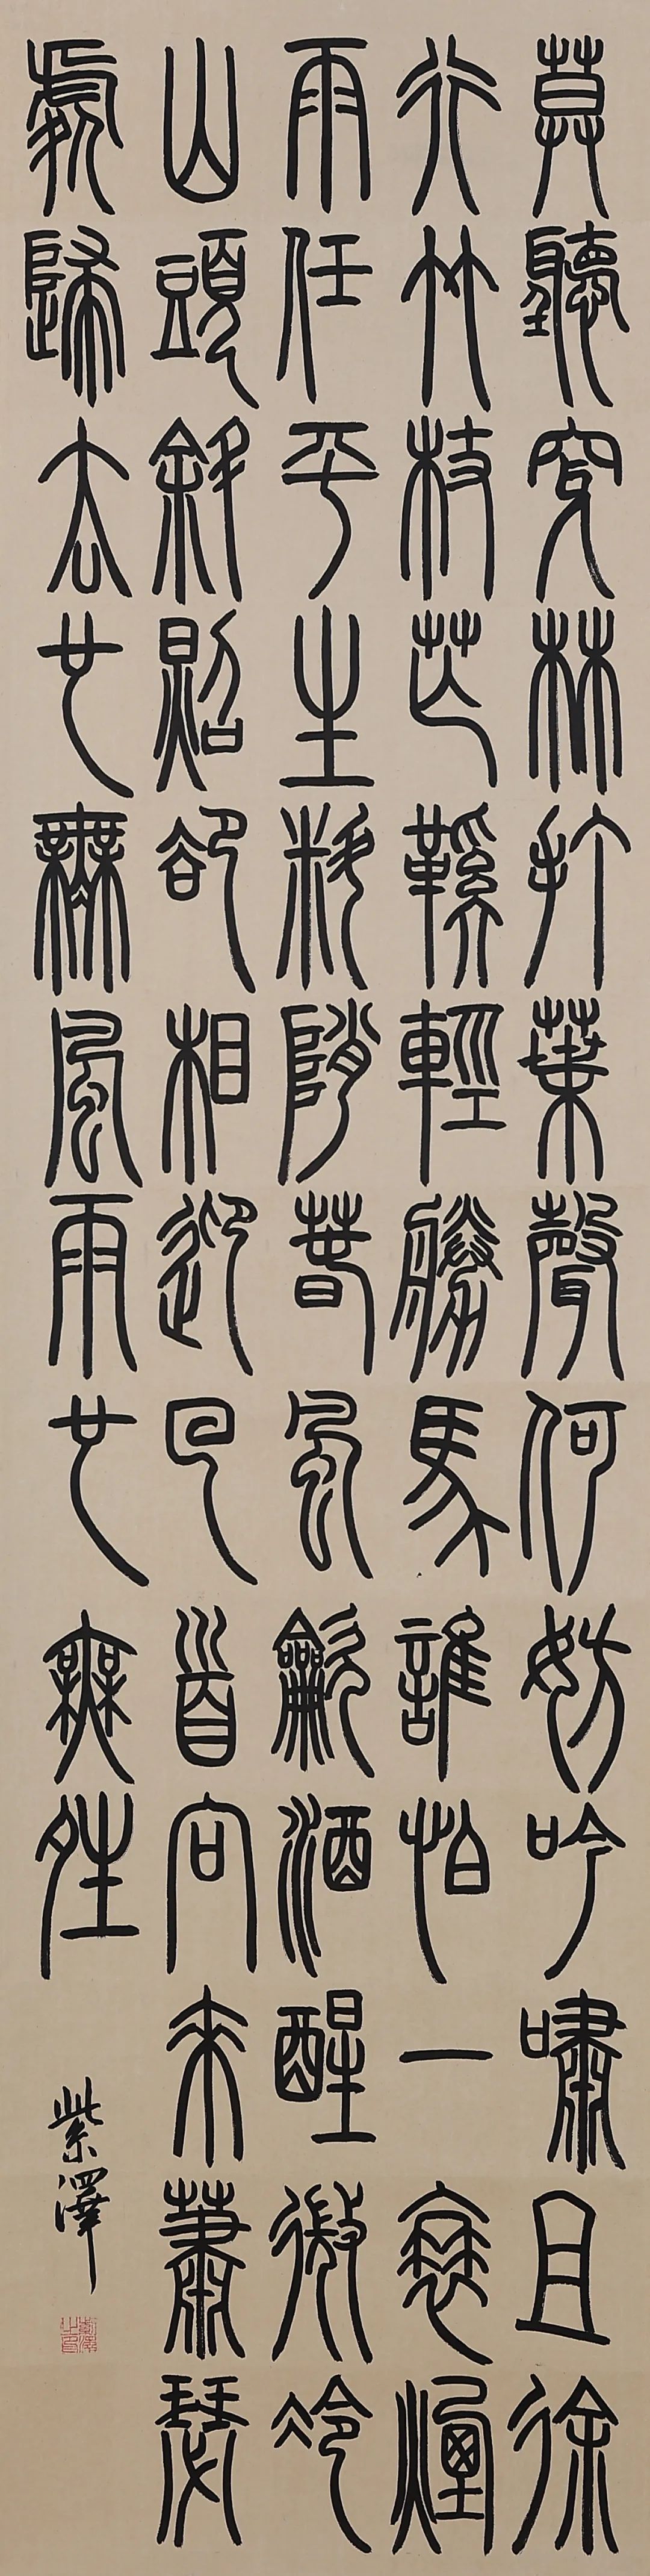 莫聽穿林打葉聲何妨吟嘯且徐
行竹杖芒鞵輕勝馬誰怕一蓑煙
雨任平生料峭春風龡酒醒微冷
山頭斜照卻相迎回首向來蕭瑟
處歸去也無風雨也無晴
紫澤